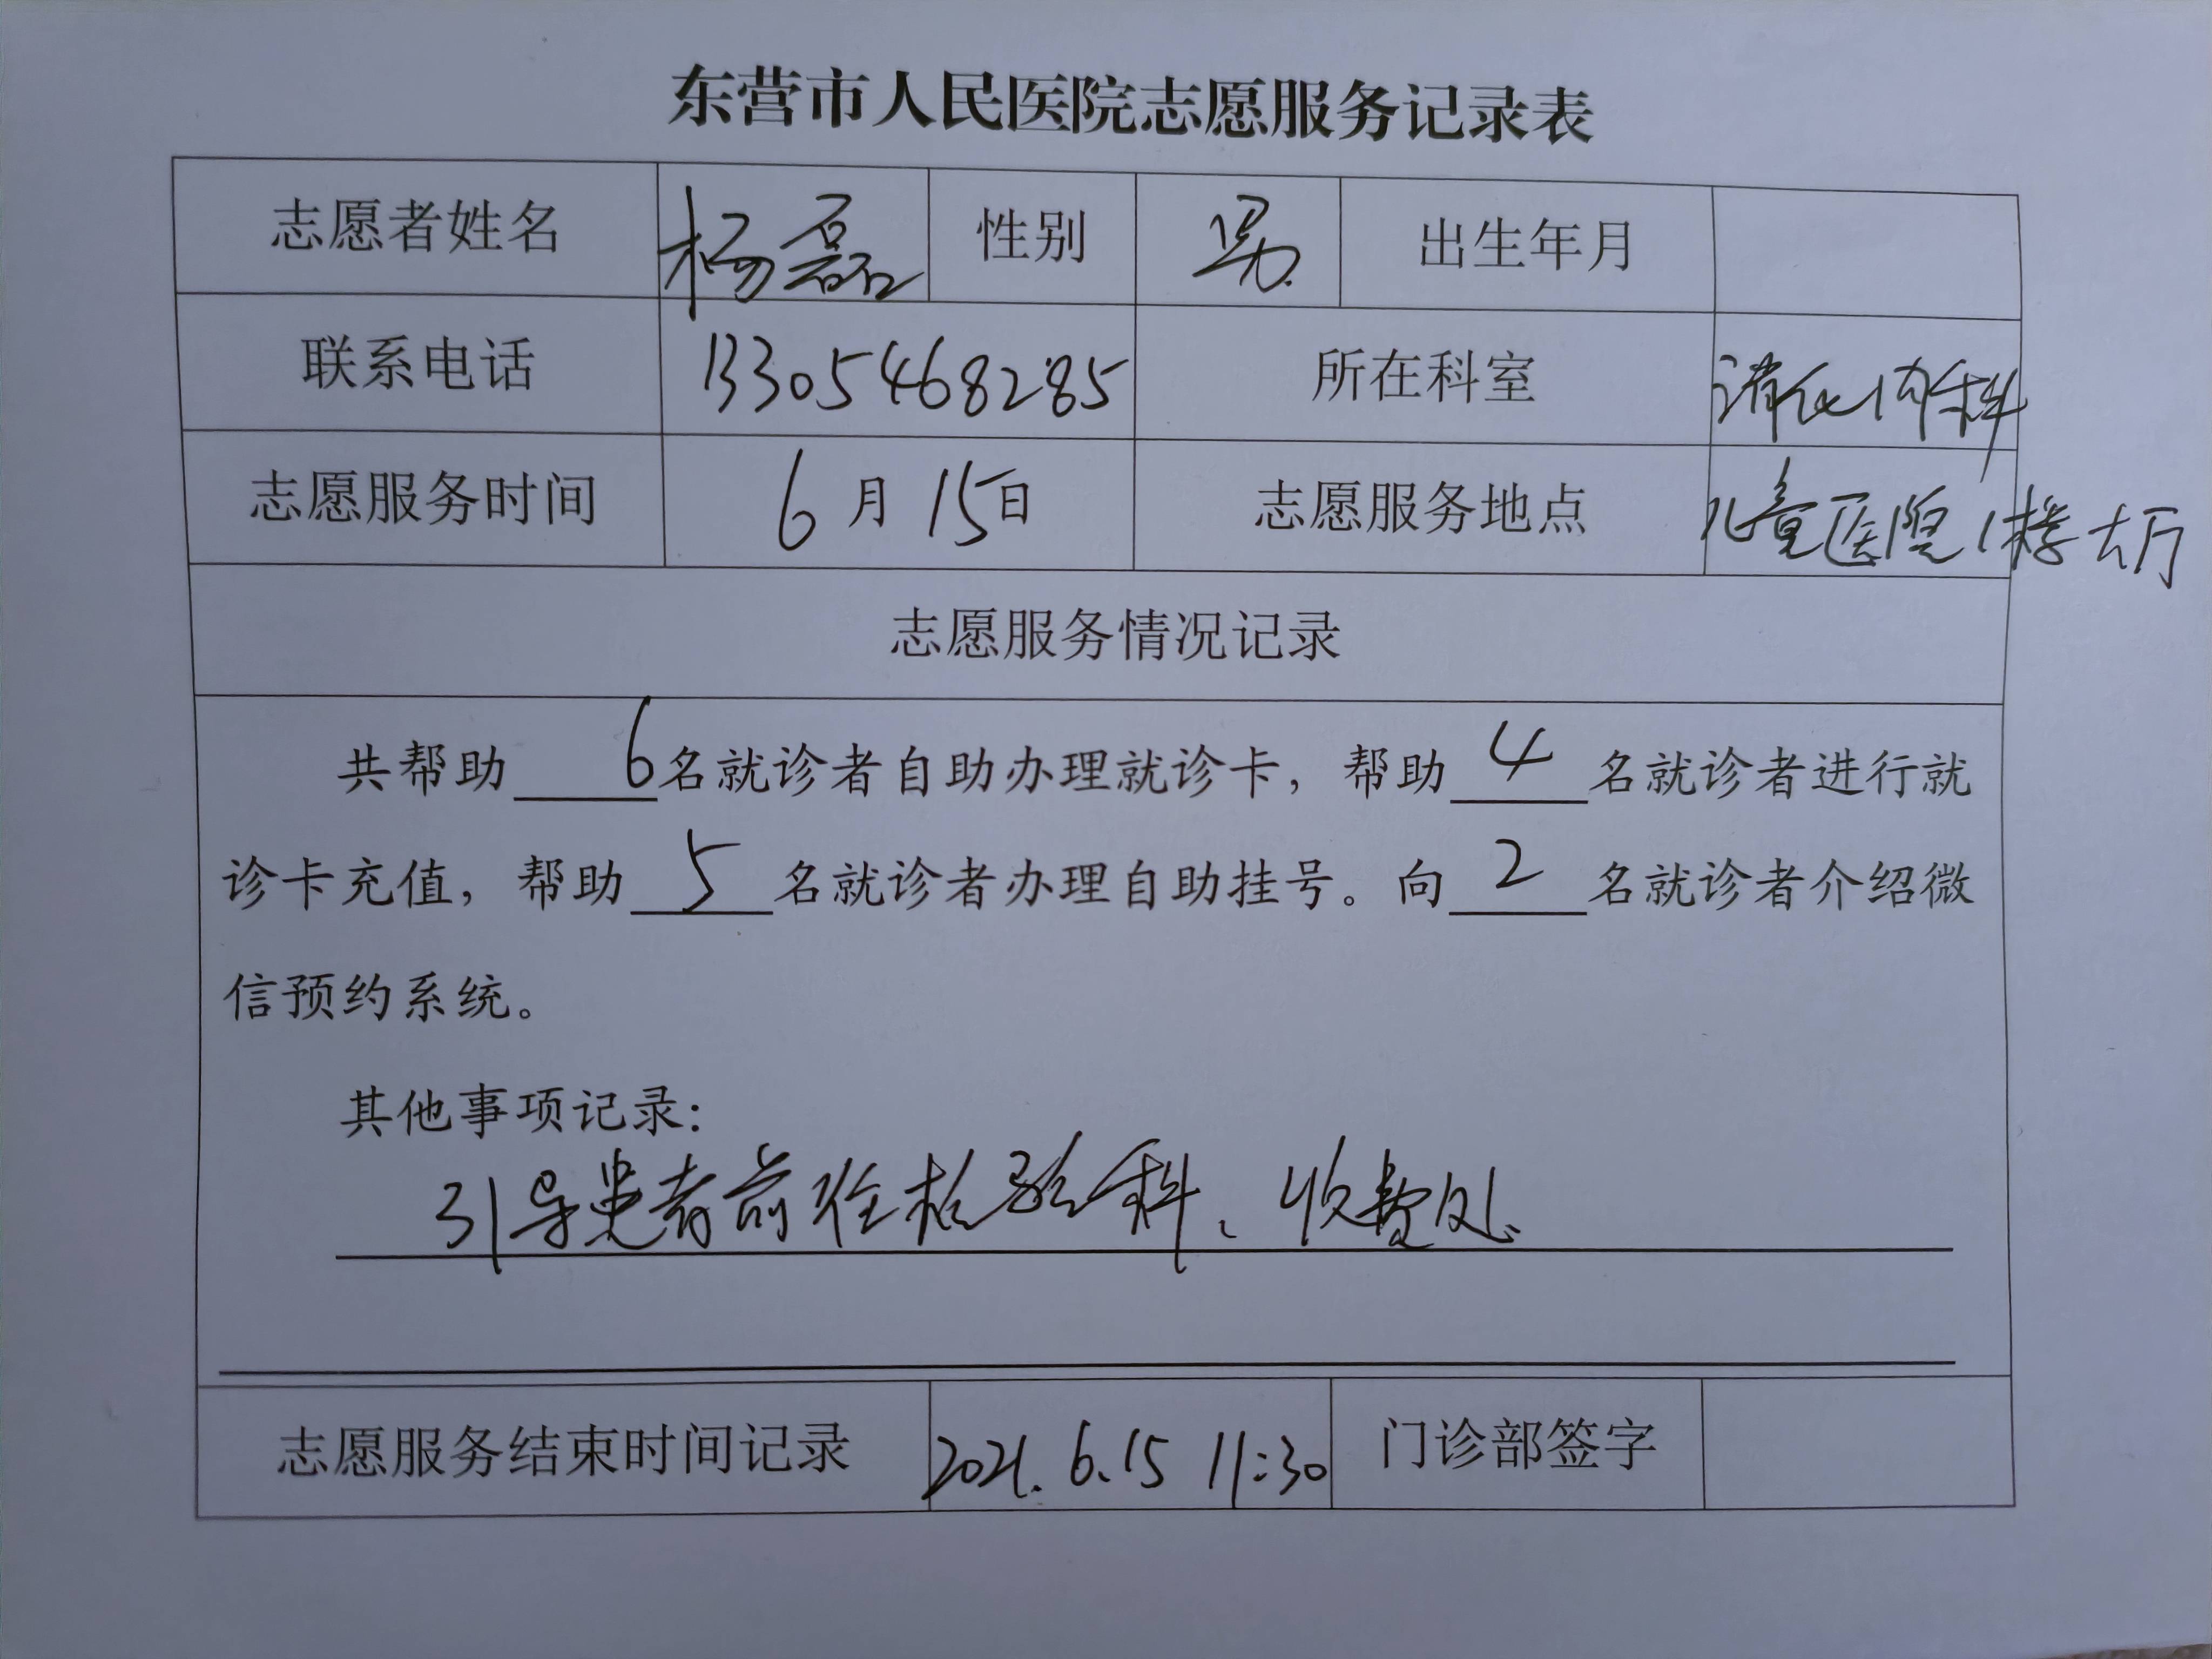 东营市人民医院志愿服务记录表
志愿者姓名 杨磊 性别 男 出生年月
联系电话 13305468285 所在科室 消化内科
志愿服务时间 6月15日 志愿服务地点 儿童医院1楼大厅
志愿服务情况记录
共帮助6名就诊者自助办理就诊卡，帮助4名就诊者进行就
诊卡充值，帮助5名就诊者办理自助挂号。向2名就诊者介绍微
信预约系统。
其他事项记录：
引导患者前往检验科、收费处
志愿服务结束时间记录 2021.6.15 11:30 门诊部签字